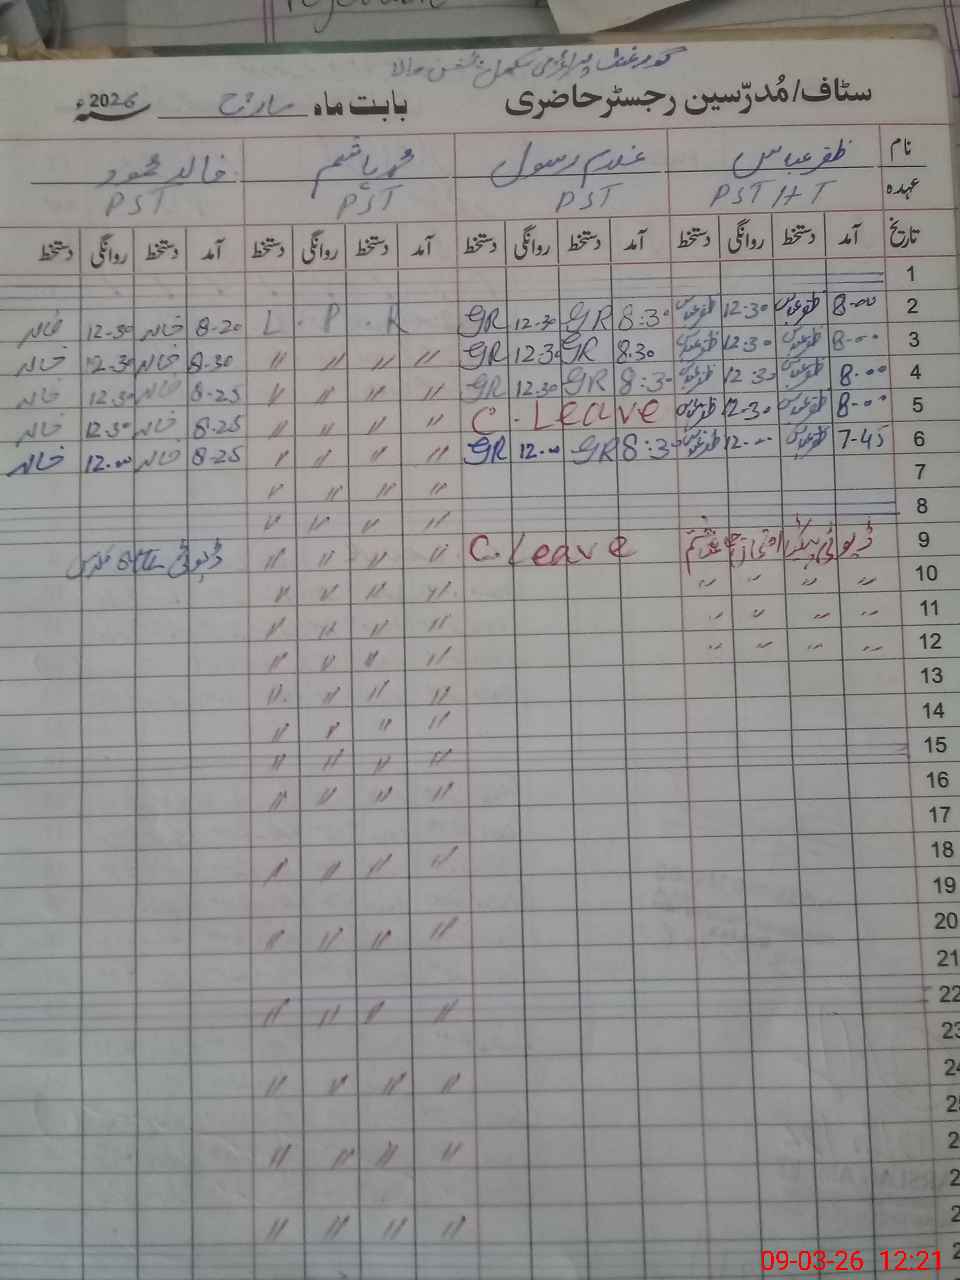 گورنمنٹ پرائمری سکول والا
سٹاف/مُدرّسین رجسٹر حاضری بابت ماہ مارچ سنہ 2026ء
نام ظفر عباس غلام رسول محمد ہاشم خالد محمود
عہدہ PST HT PST PST PST
تاریخ آمد دستخط روانگی دستخط آمد دستخط روانگی دستخط آمد دستخط روانگی دستخط آمد دستخط روانگی دستخط
1
2 8-00 ظفر عباس 12-30 ظفر عباس 8:30 GR 12-30 GR L.P.R 8-20 خالد 12-30 خالد
3 8-00 ظفر عباس 12-30 ظفر عباس 8.30 GR 12.30 GR " " " " 8-30 خالد 12.30 خالد
4 8-00 ظفر عباس 12-30 ظفر عباس 8:30 GR 12.30 GR " " " " 8-25 خالد 12.30 خالد
5 8-00 ظفر عباس 12-30 ظفر عباس C. Leave " " " " 8-25 خالد 12.30 خالد
6 7-45 ظفر عباس 12-00 ظفر عباس 8:30 GR 12-00 GR " " " " 8-25 خالد 12.00 خالد
7 " " " "
8 " " " "
9 ڈیوٹی پیک ہشتم C. Leave " " " " ڈیوٹی
10 " " " " " " " "
11 " " " " " " " "
12 " " " " " " " "
13 " " " "
14 " " " "
15 " " " "
16 " " " "
17
18 " " " "
19
20 " " " "
21
22 " " " "
23
24 " " " "
25
2 " " " "
2
2 " " " "
2
09-03-26 12:21